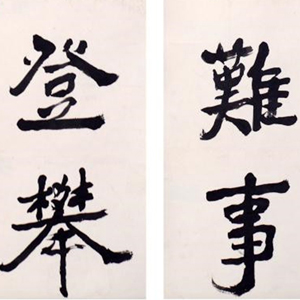 難事
登攀